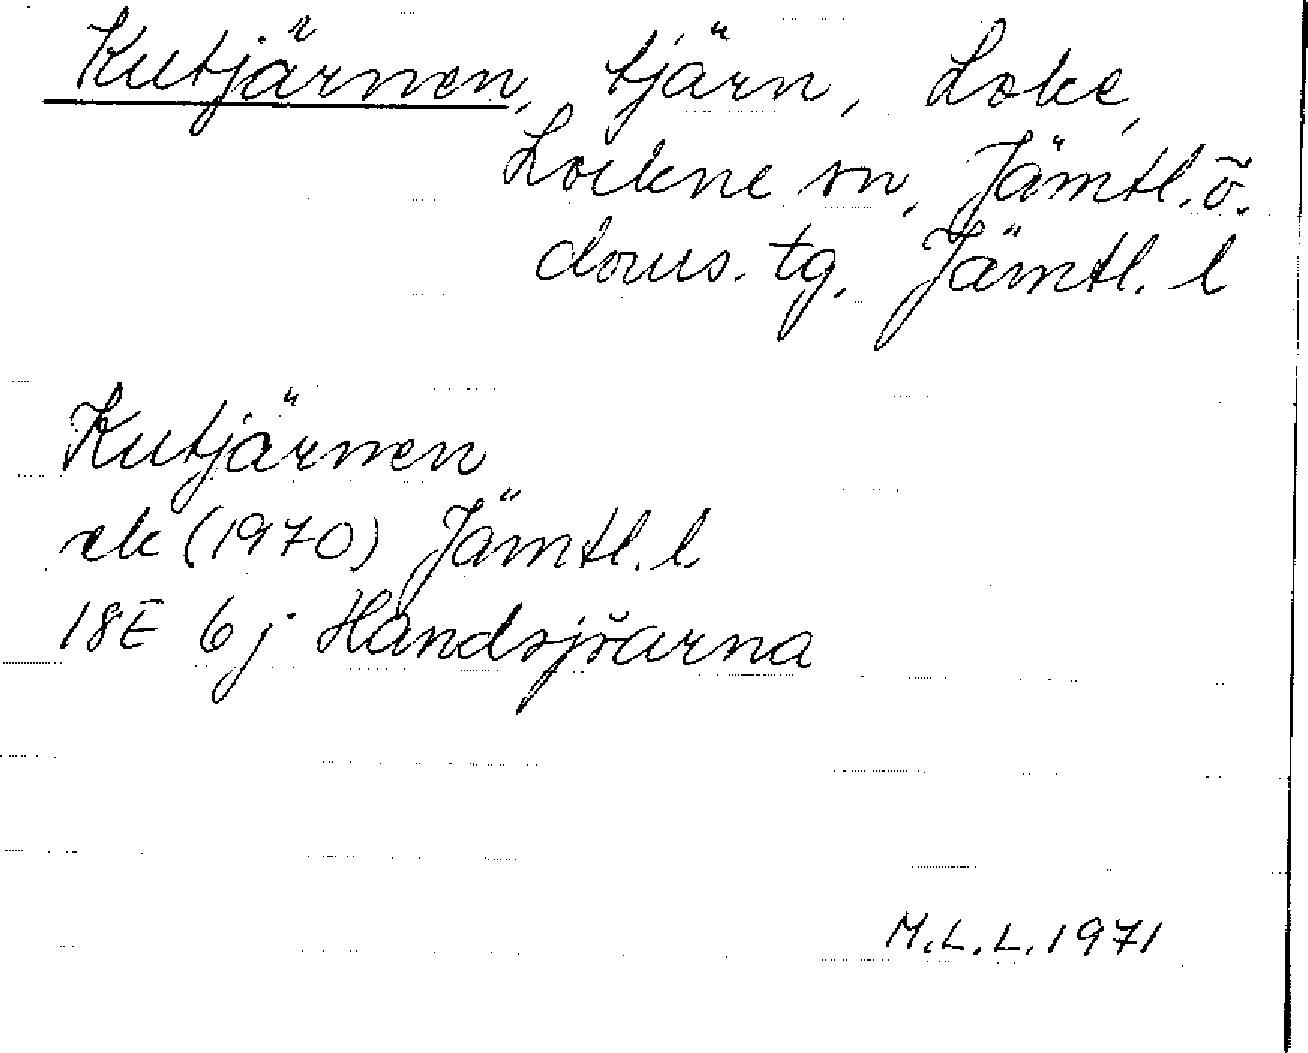 Kutjärnen, tjärn, Loke,
Lockne sn, Jämtl. ö.
doms. tg. Jämtl. l
Kutjärnen
ek (1970) Jämtl. l
18E 6j Handsjöarna
M.L.L. 1971